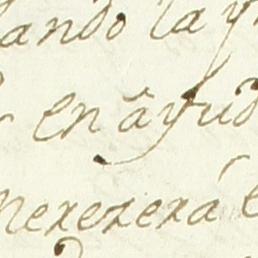 ando la y
en âyud
merezerá e